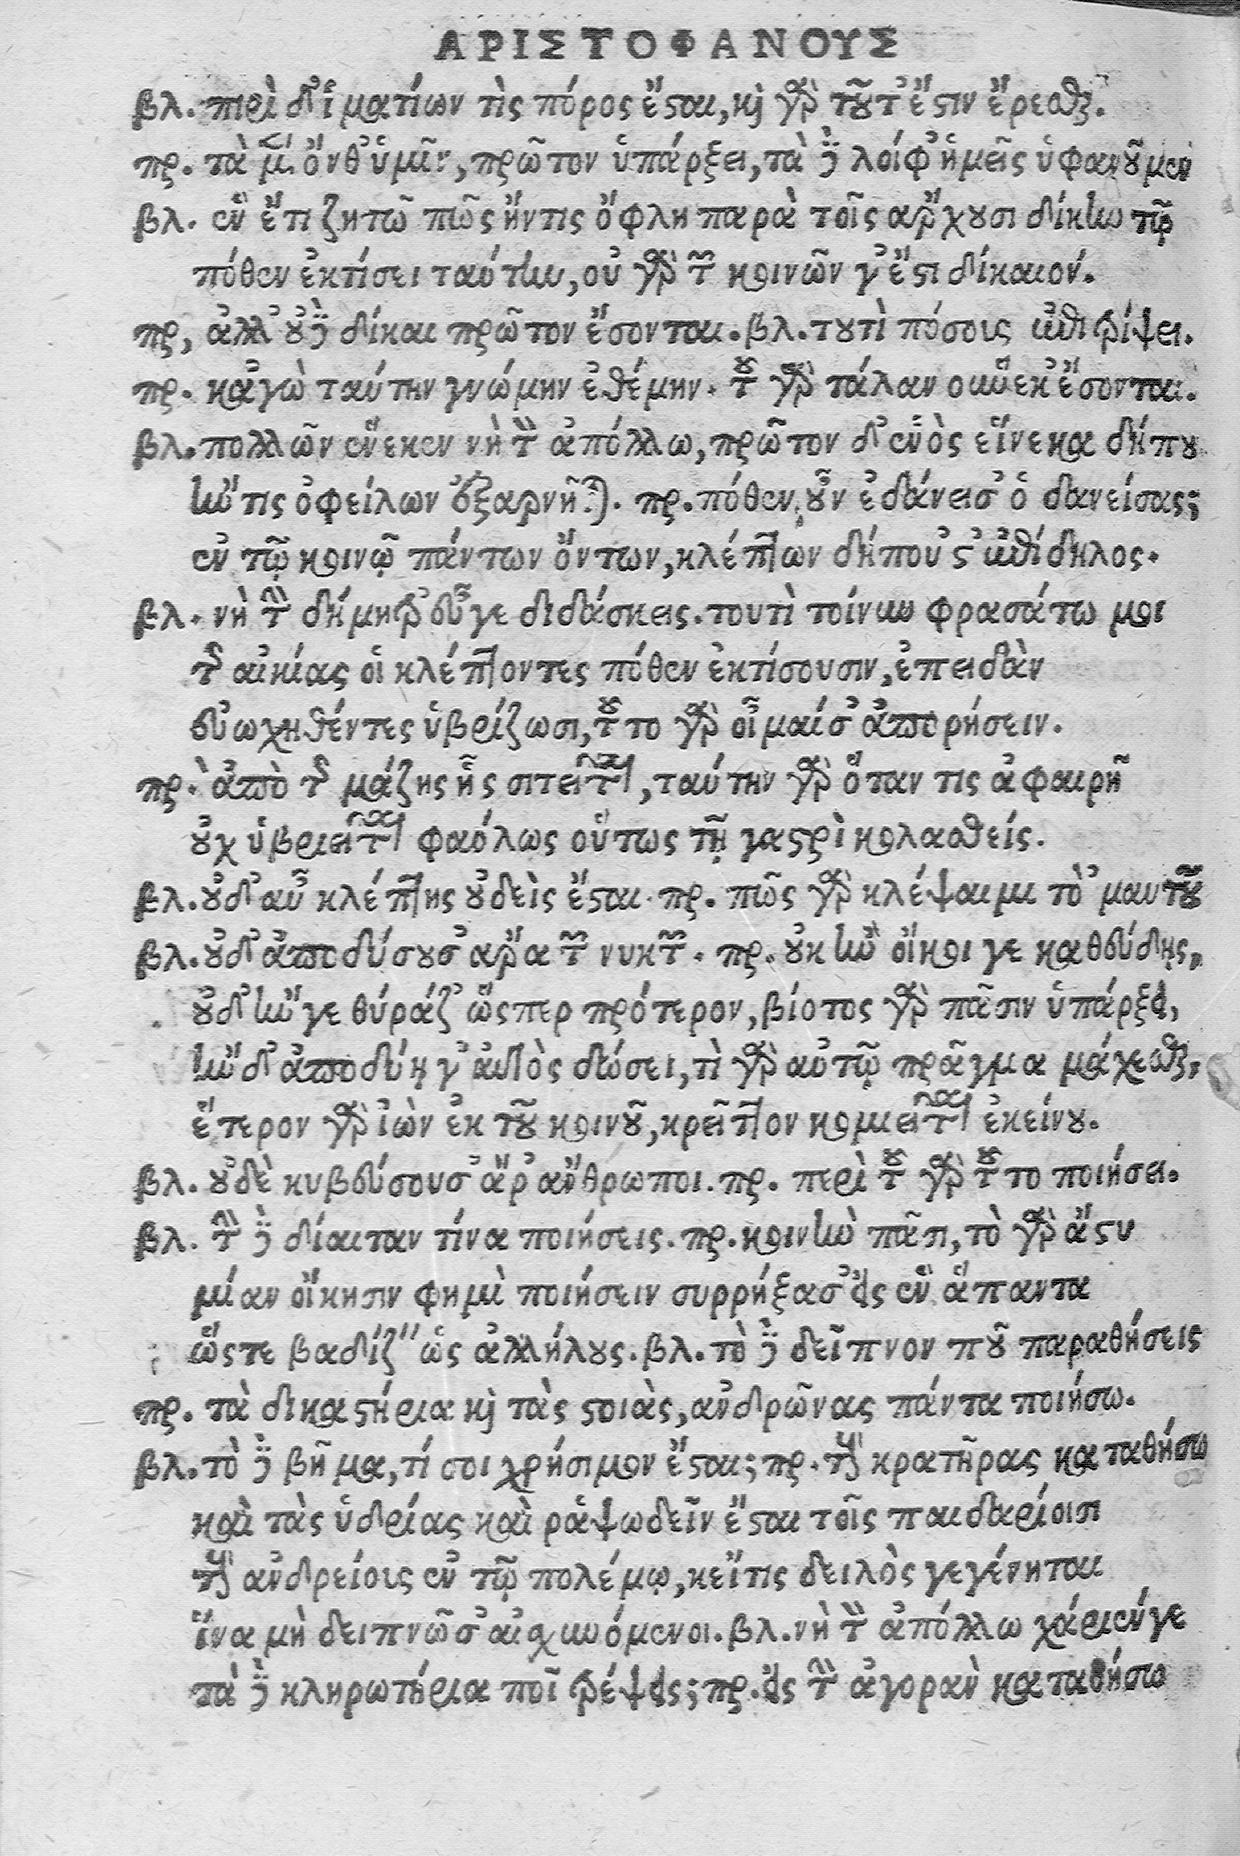 ΑΡΙΣΤΟΦΑΝΟΥΣ
βλ. περὶ δ' ἱματίων τὶς πόρος ἔσται, καὶ γὰρ τοῦτ' ἔστιν ἔρεσθαι.
πρ. τὰ μὲν ὄνθ' ὑμῖν, πρῶτον ὑπάρξει, τὰ δὲ λοίφ' ἡμεῖς ὑφανοῦμεν
βλ. ἓν ἔτι ζητῶ πῶς ἤντις ὄφλη παρὰ τοῖς ἄρχουσι δίκην τῷ
πόθεν ἐκτίσει ταύτην, οὐ γὰρ τῶν κοινῶν γ' ἔστι δίκαιον.
πρ, ἀλλ' οὐδὲ δίκαι πρῶτον ἔσονται. βλ. τουτὶ πόσους ἐπιτρίψει.
πρ. κἀγὼ ταύτην γνώμην ἐθέμην. τοῦ γὰρ τάλαν οὕνεκ' ἔσονται.
βλ. πολλῶν ἕνεκεν νὴ τὸν ἀπόλλω, πρῶτον δ' ἑνὸς εἵνεκα δήπου
ἤν τις ὀφείλων ἐξαρνῆται. πρ. πόθεν οὖν ἐδάνεισ' ὁ δανείσας;
ἐν τῷ κοινῷ πάντων ὄντων, κλέπτων δήπου 'στ' ἐπίδηλος.
βλ. νὴ τὴν δήμητρ' εὖγε διδάσκεις. τουτὶ τοίνυν φρασάτω μοι
τῆς αἰκίας οἱ κλέπτοντες πόθεν ἐκτίσουσιν, ἐπειδὰν
εὐωχηθέντες ὑβρίζωσι, τοῦτο γὰρ οἶμαί σ' ἀπορήσειν.
πρ. ἀπὸ τῆς μάζης ἧς σιτεῖται, ταύτην γὰρ ὅταν τις ἀφαιρῆ
οὐχ ὑβριεῖται φαόλως οὕτως τῇ γαστρὶ κολασθείς.
βλ. οὐδ' αὖ κλέπτης οὐδεὶς ἔσται. πρ. πῶς γὰρ κλέψαι μι τὸ 'μαυτοῦ
βλ. οὐδ' ἀποδύσουσ' ἄρα τῶν νυκτῶν. πρ. οὐκ ἢν οἴκοι γε καθεύδῃς,
οὐδ' ἤν γε θύραζ' ὥσπερ πρότερον, βίοτος γὰρ πᾶσιν ὑπάρξει,
ἢν δ' ἀποδύῃ γ' αὐτὸς δώσει, τὶ γὰρ αὐτῷ πρᾶγμα μάχεσθαι,
ἕτερον γὰρ ἰὼν ἐκ τοῦ κοινοῦ, κρεῖττον κομιεῖται ἐκείνου.
βλ. οὐδὲ κυβεύσουσ' ἄρ' ἄνθρωποι. πρ. περὶ τοῦ γὰρ τοῦτο ποιήσει.
βλ. τὴν δὲ δίαιταν τίνα ποιήσεις. πρ. κοινὴν πᾶσι, τὸ γὰρ ἄστυ
μίαν οἴκησιν φημὶ ποιήσειν συρρήξασ' εἰς ἓν ἅπαντα
ὥστε βαδίζ'' ὡς ἀλλήλους. βλ. τὸ δὲ δεῖπνον ποῦ παραθήσεις
πρ. τὰ δικαστήρια καὶ τὰς στοιὰς, ἀνδρῶνας πάντα ποιήσω.
βλ. τὸ δὲ βῆμα, τί σοι χρήσιμον ἔσται; πρ. τοὺς κρατῆρας καταθήσω
καὶ τὰς ὑδρίας καὶ ῥαψωδεῖν ἔσται τοῖς παιδαρίοισι
τοὺς ἀνδρείους ἐν τῷ πολέμῳ, κεἴτις δειλὸς γεγένηται
ἵνα μὴ δειπνῶσ' αἰσχυνόμενοι. βλ. νὴ τὸν ἀπόλλω χάριεν γε
τὰ δὲ κληρωτήρια ποῖ τρέψεις; πρ. εἰς τὴν ἀγορὰν καταθήσω